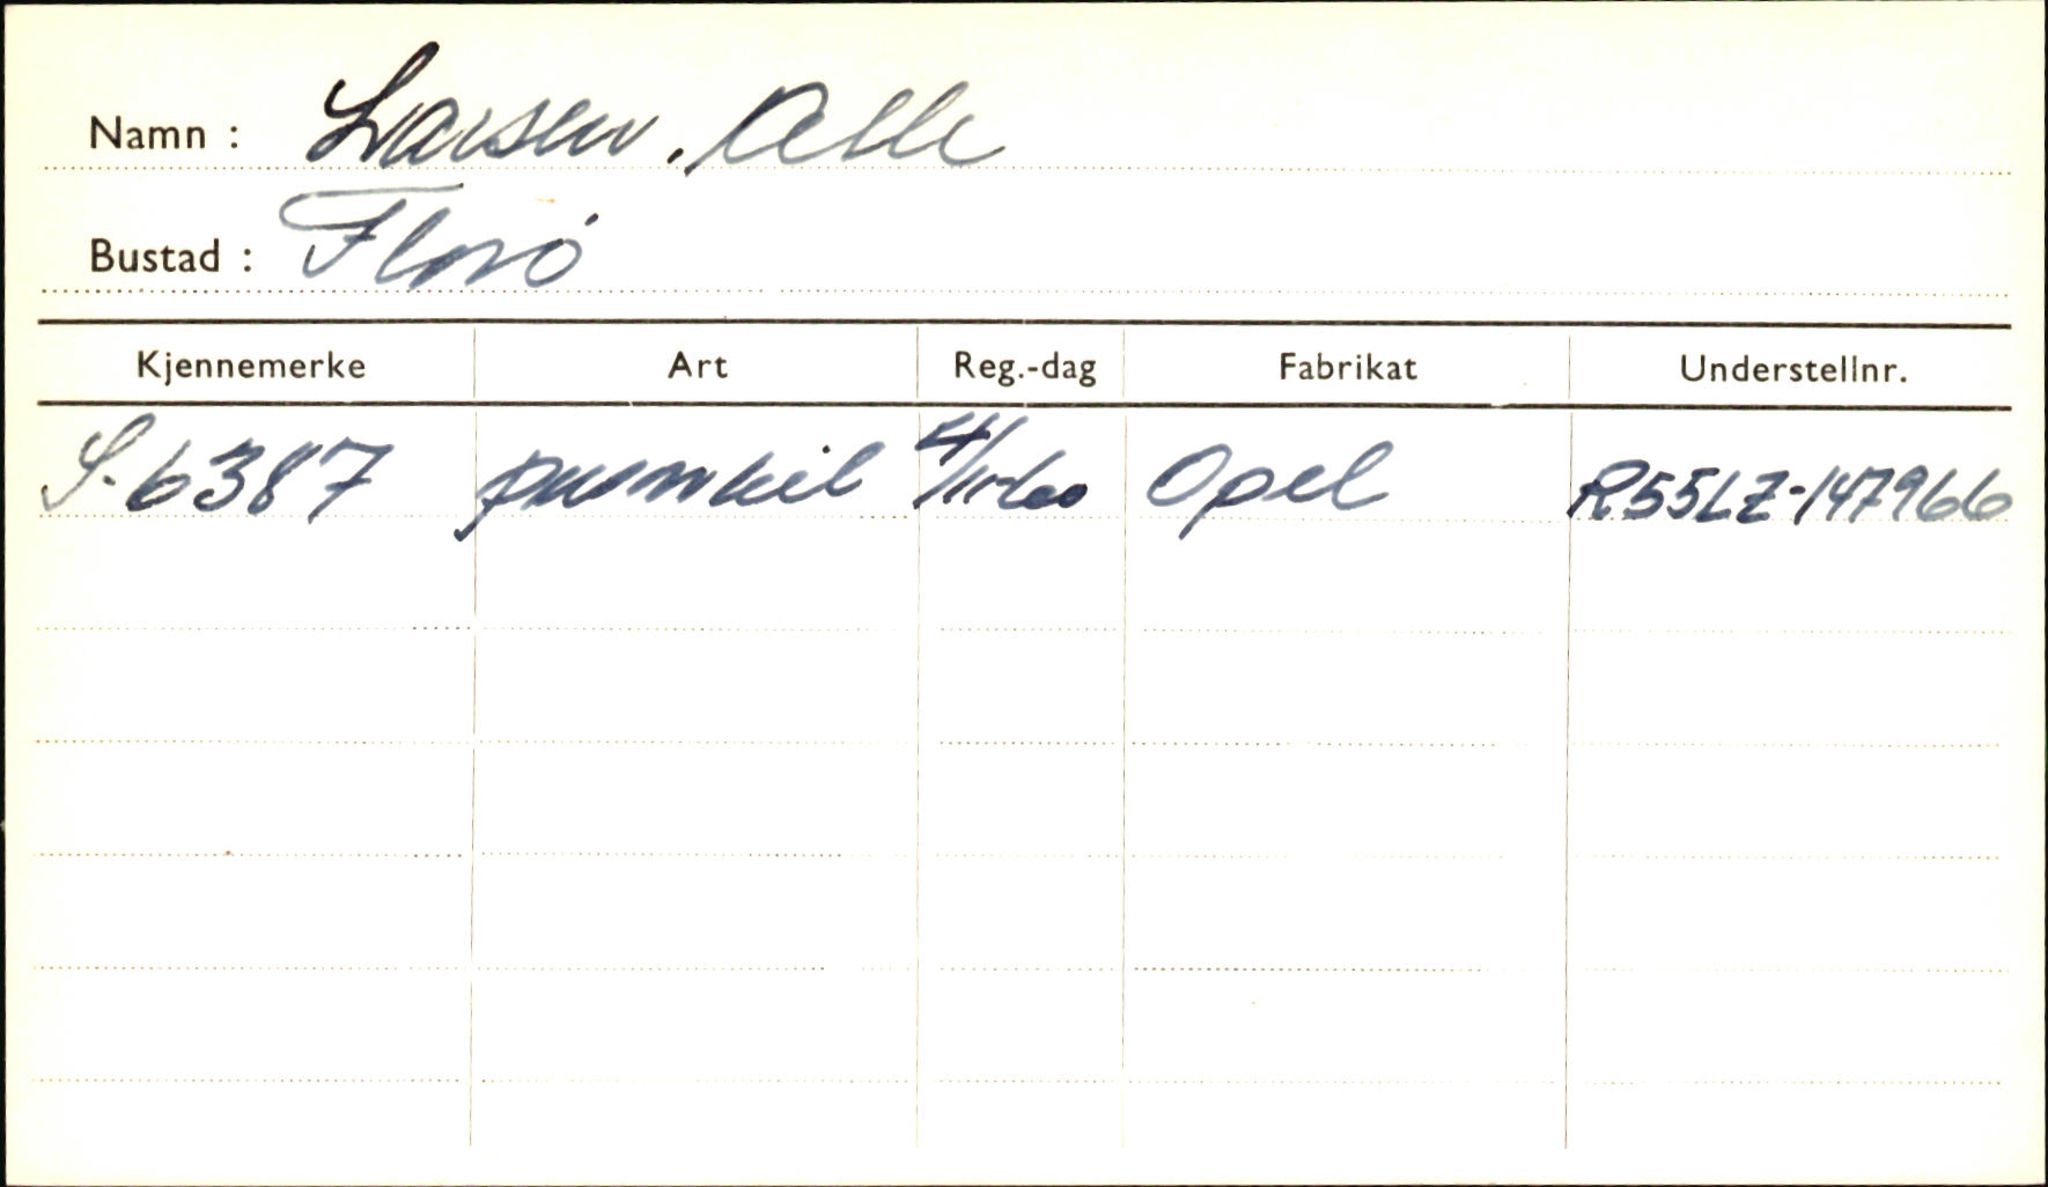 Namn : Larsen, Atle
Bustad : Florö
Kjennemerke Art Reg.-dag Fabrikat Understellnr.
S-6387 personbil 4/11-60 Opel R55LZ-147966